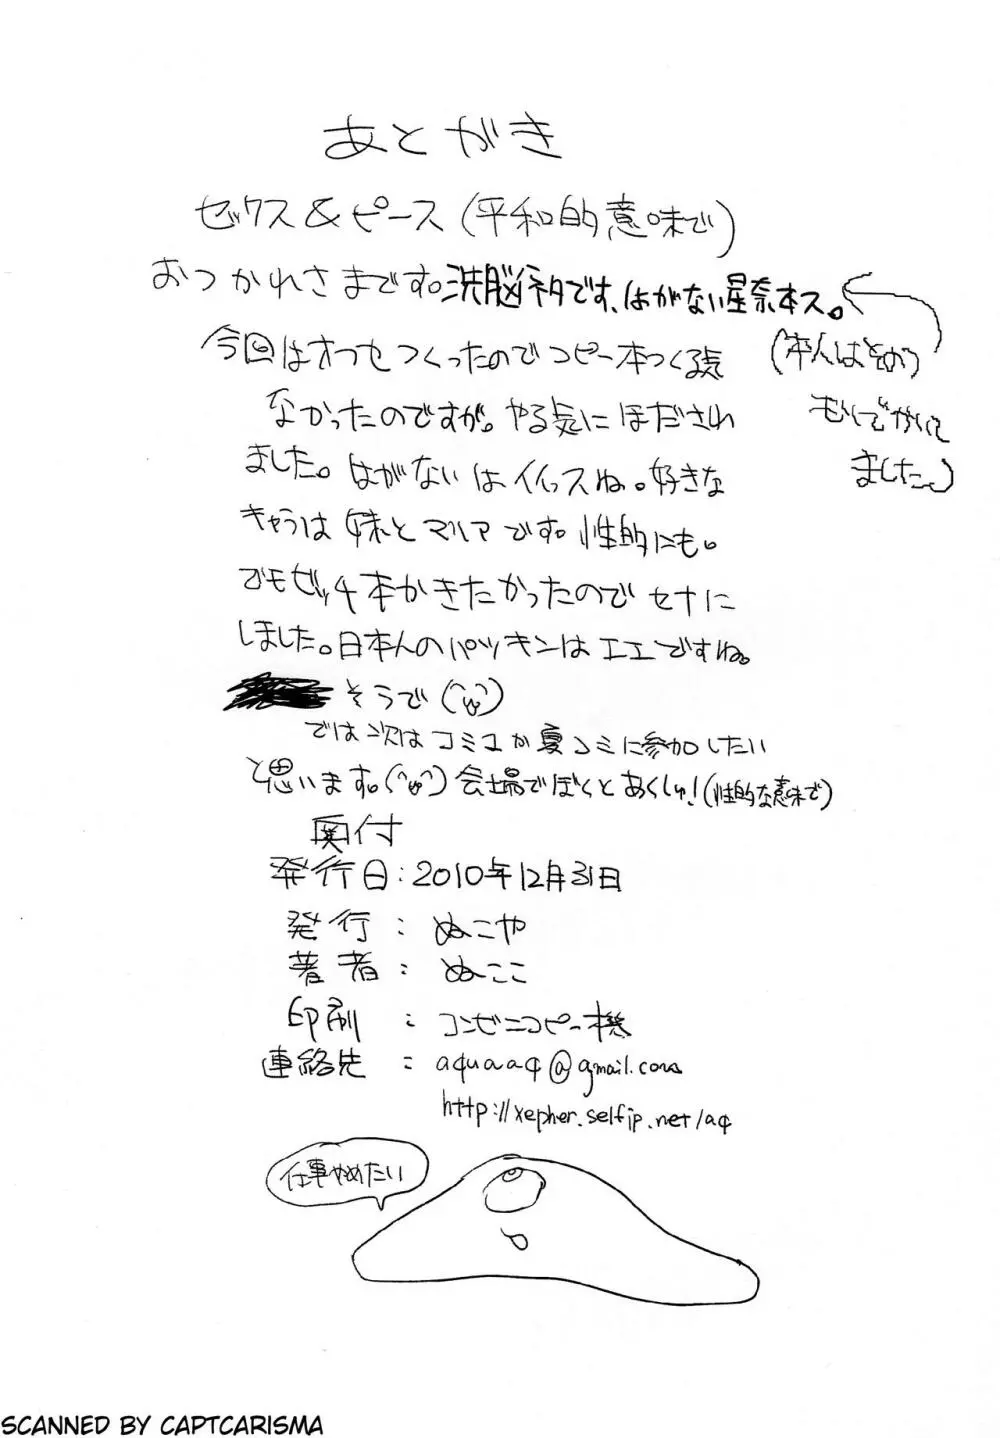 あとがき
セックス&ピース(平和的意味で)
おつかれさまです。洗脳ネタです、はがない星奈本ス。
(本人はとおり
もしでかいて
ました。)
今回はオフセつくったのでコピー本つくる気
なかったのですが。やる気にほだされ
ました。はがないはイイっスね。好きな
キャラは妹とマリアです。性的にも。
でもビッチ本かきたかったのでセナに
しました。日本人のパツキンはエエですね。
そうで(^ω^)
では次はコミコか夏コミに参加したい
と思います。(^ω^)会場でぼくとあくしゅ!(性的な意味で)
奥付
発行日:2010年12月31日
発行:ぬこや
著者:ぬここ
印刷:コンビニコピー機
連絡先:aquaaq@gmail.com
http://xepher.selfip.net/aq
仕事やめたい
SCANNED BY CAPTCARISMA